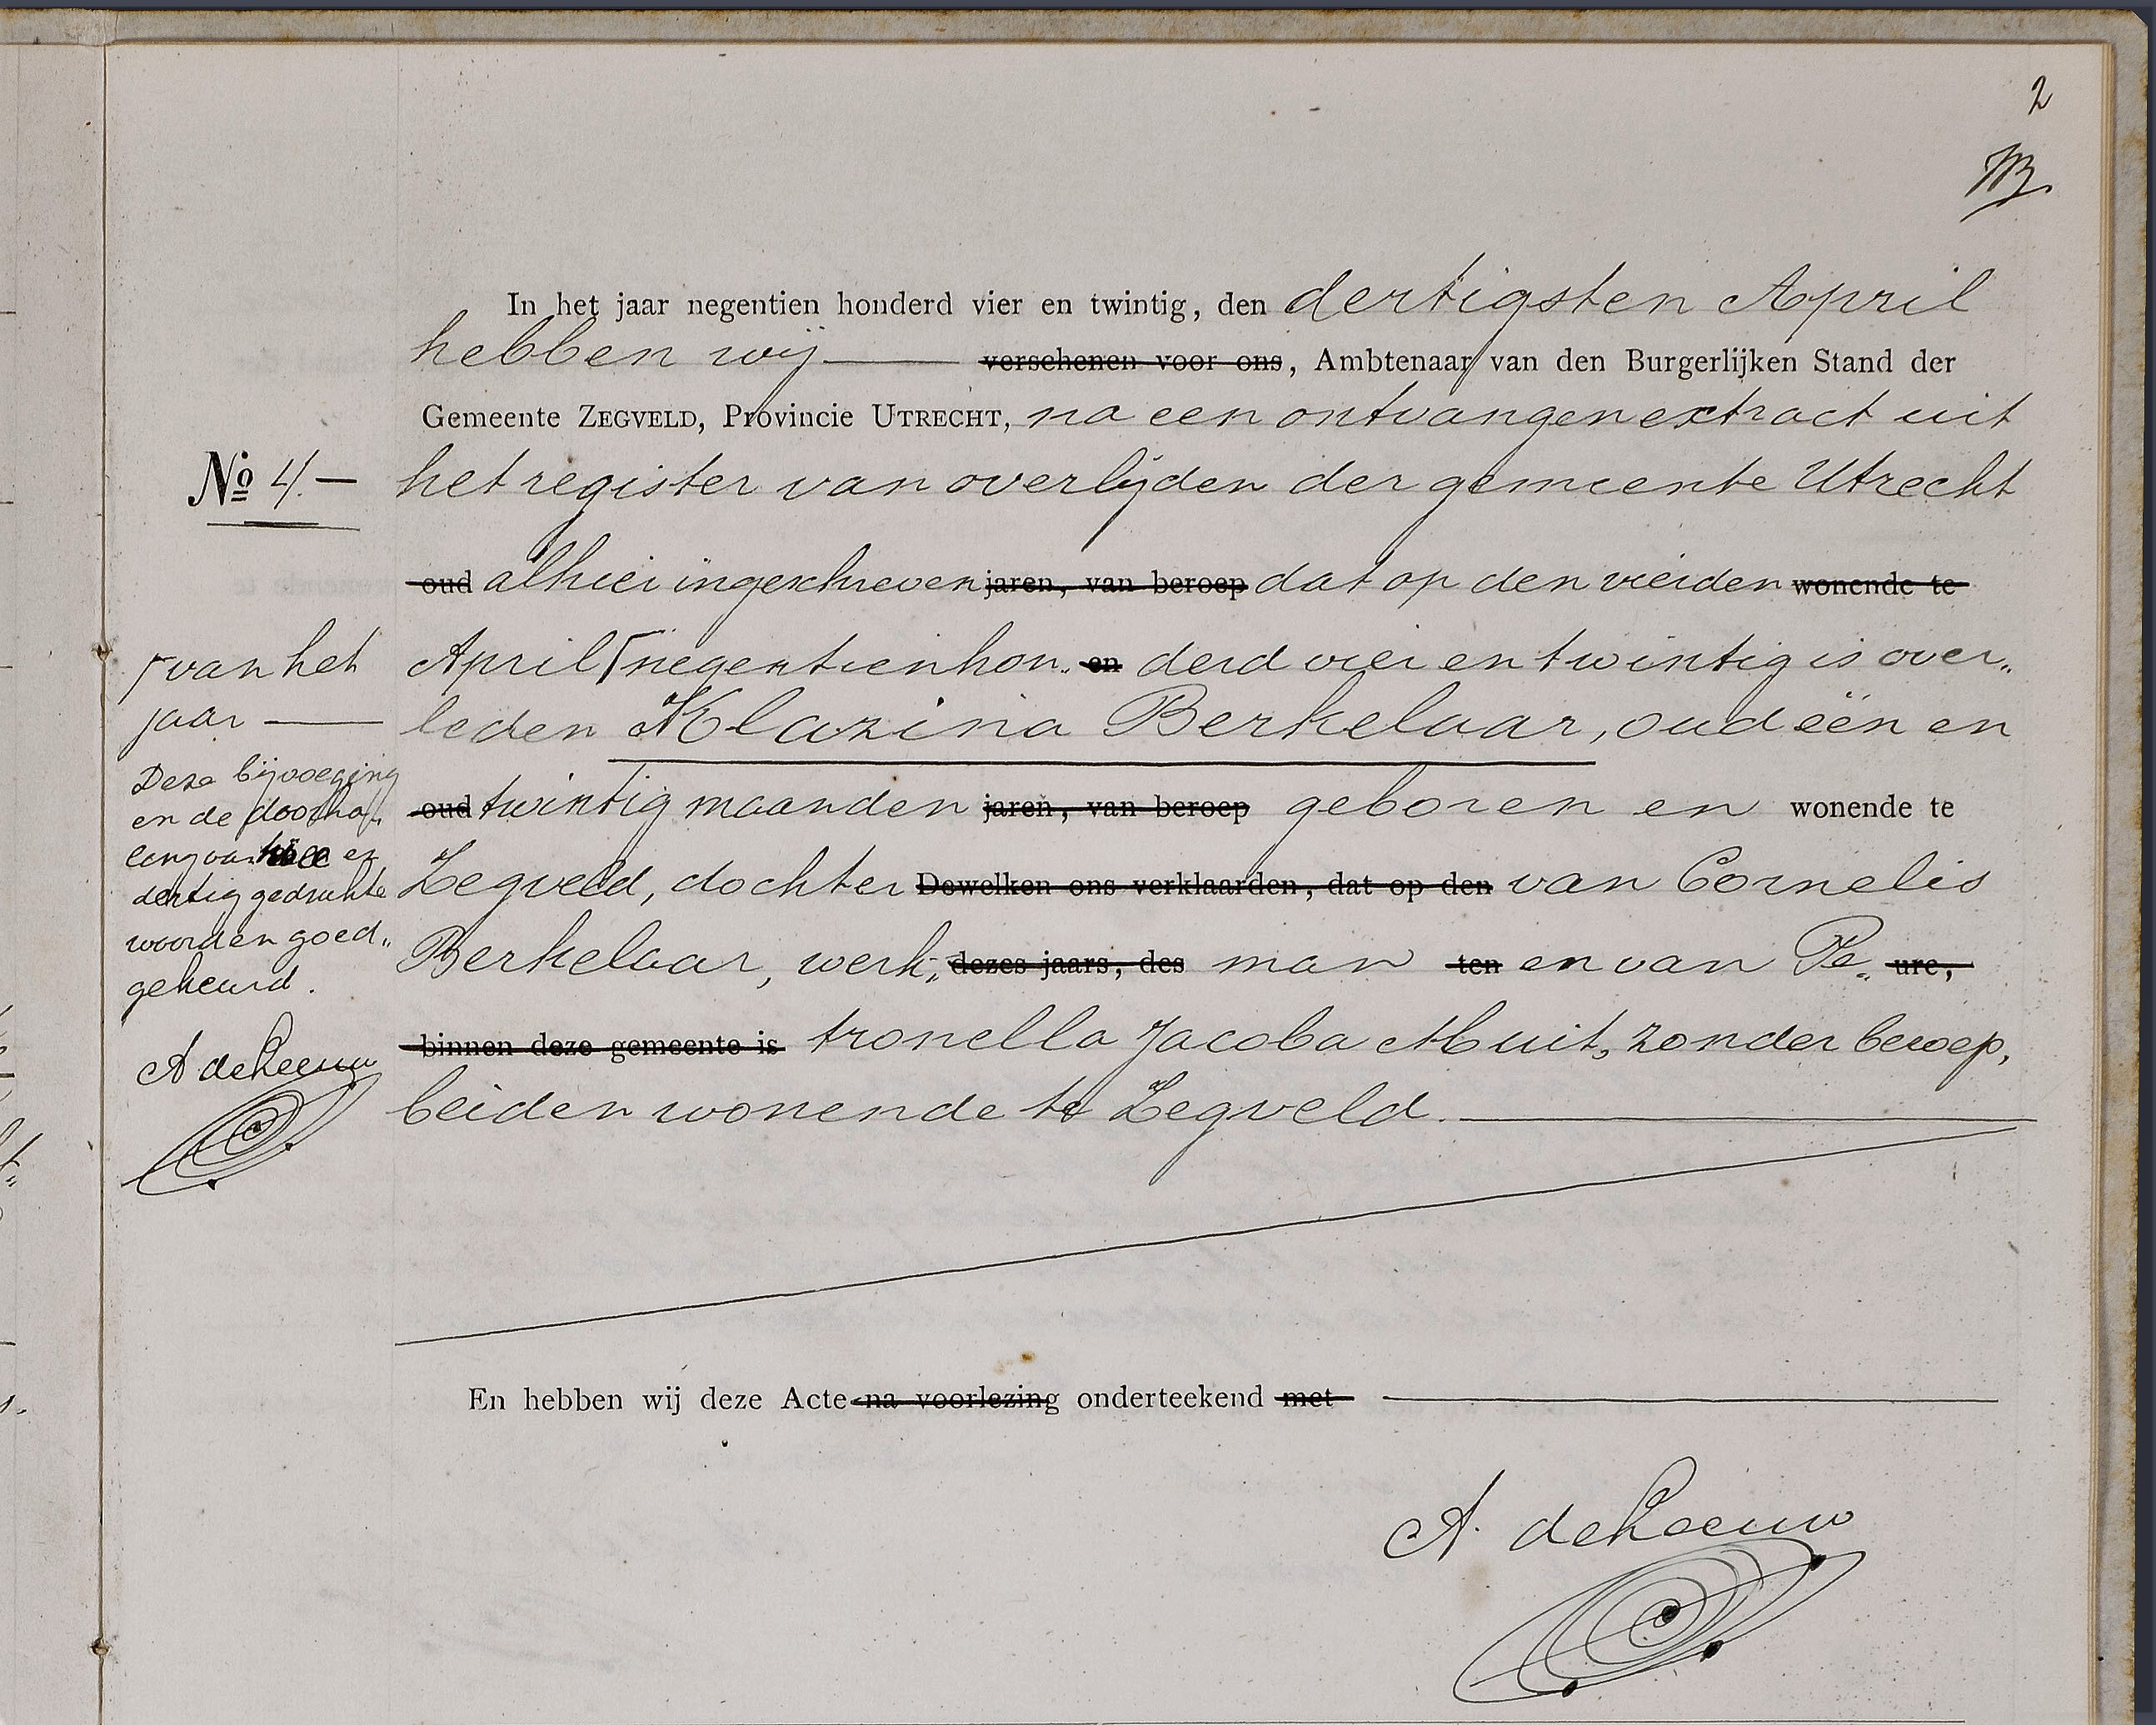 2
In het jaar negentien honderd vier en twintig, den dertigsten April
hebben wij verschenen voor ons, Ambtenaar van den Burgerlijken Stand der
Gemeente ZEGVELD, Provincie UTRECHT, na een ontvangen extract uit
No 4.— het register van overlijden der gemeente Utrecht
oud alhier ingeschreven jaren, van beroep dat op den vierden wonende te
April ⌈ negentienhon„ en derd vier en twintig is over„
leden Klazina Berkelaar, oud één en
oud twintig maanden jaren, van beroep geboren en wonende te
Zegveld, dochter Dewelken ons verklaarden, dat op den van Cornelis
Berkelaar, werk„ dezes jaars, des man ten en van Pe„ ure,
binnen deze gemeente is tronella Jacoba Muit, zonder beroep,
beiden wonende te Zegveld.
⌈ van het
jaar
Deze bijvoeging
en de doorha„
ling van en
dertig gedrukte
woorden goed„
gekeurd.
A de Leeuw
En hebben wij deze Acte na voorlezing onderteekend met
A. de Leeuw